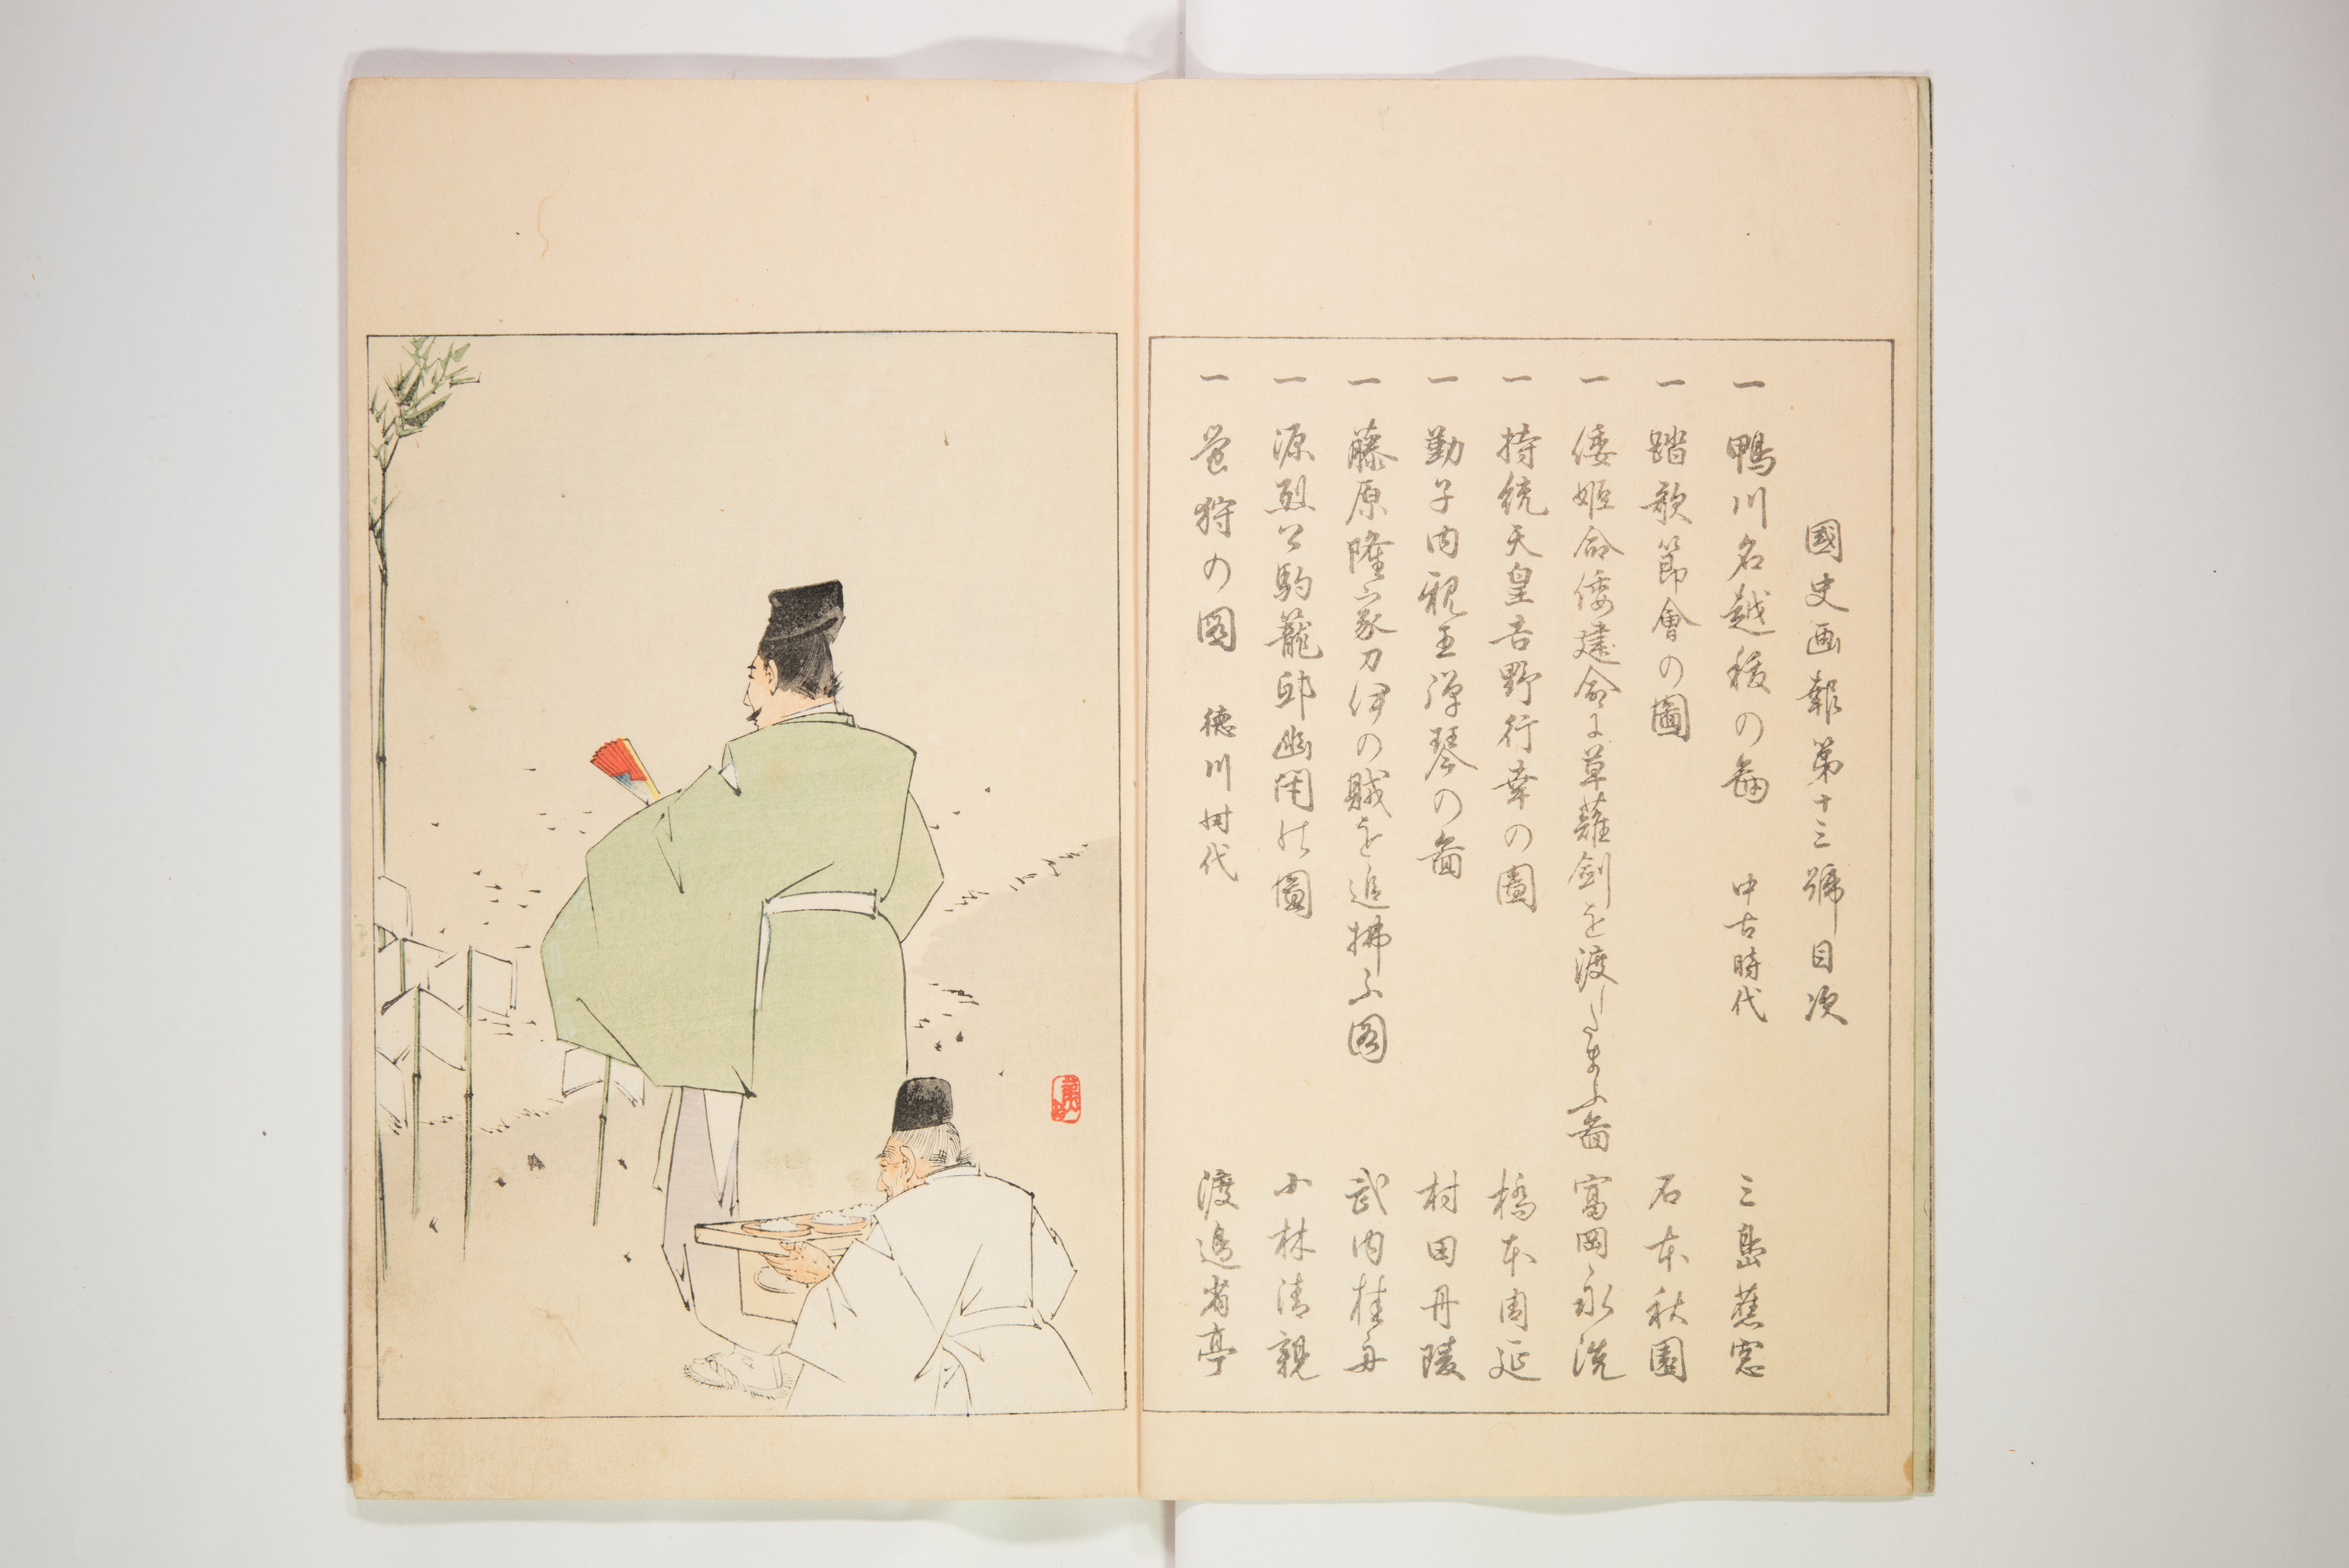 國史画報第十三號目次
一 鴨川名越祓の圖 中古時代 三島蕉窓
一 踏歌節會の圖 石本秋園
一 倭姫命倭建命に草薙劔を渡したまふ圖 富岡永洗
一 持統天皇吉野行幸の圖 橋本周延
一 勤子内親王弾琴の圖 村田丹陵
一 藤原隆家刀伊の賊を追拂ふ図 武内桂舟
一 源烈公駒籠邸幽閑の圖 小林清親
一 蛍狩の図 徳川時代 渡邉省亭